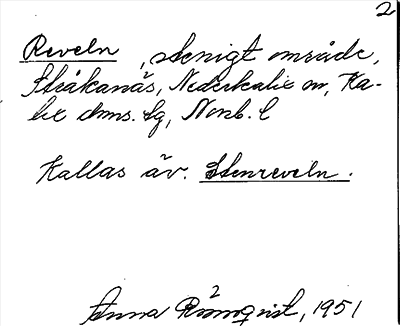 2
Reveln, stenigt område,
Stråkanäs, Nederkalix sn, Ka-
lix dms. lg, Norrb. l
Kallas äv. Stenreveln.
Anna Römqvist, 1951